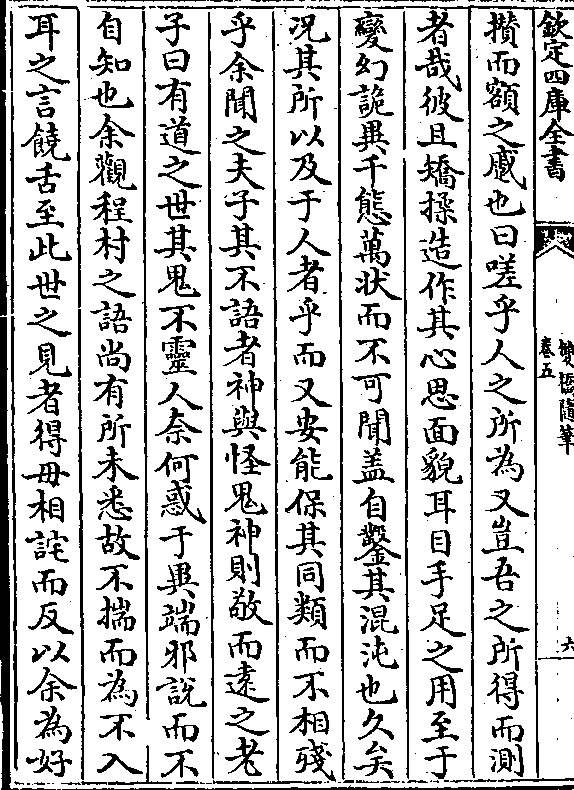 欽定四庫全書
雙橋隨筆
卷五
六
攅而額之蹙也曰嗟乎人之所為又豈吾之所得而測
者哉彼且矯揉造作其心思面貌耳目手足之用至于
變幻詭異千態萬狀而不可聞盖自鑿其混沌也久矣
況其所以及于人者乎而又安能保其同類而不相殘
乎余聞之夫子其不語者神與怪鬼神則敬而逺之老
子曰有道之世其鬼不靈人奈何惑于異端邪說而不
自知也余觀程村之語尚有所未悉故不揣而為不入
耳之言饒舌至此世之見者得毋相詫而反以余為好